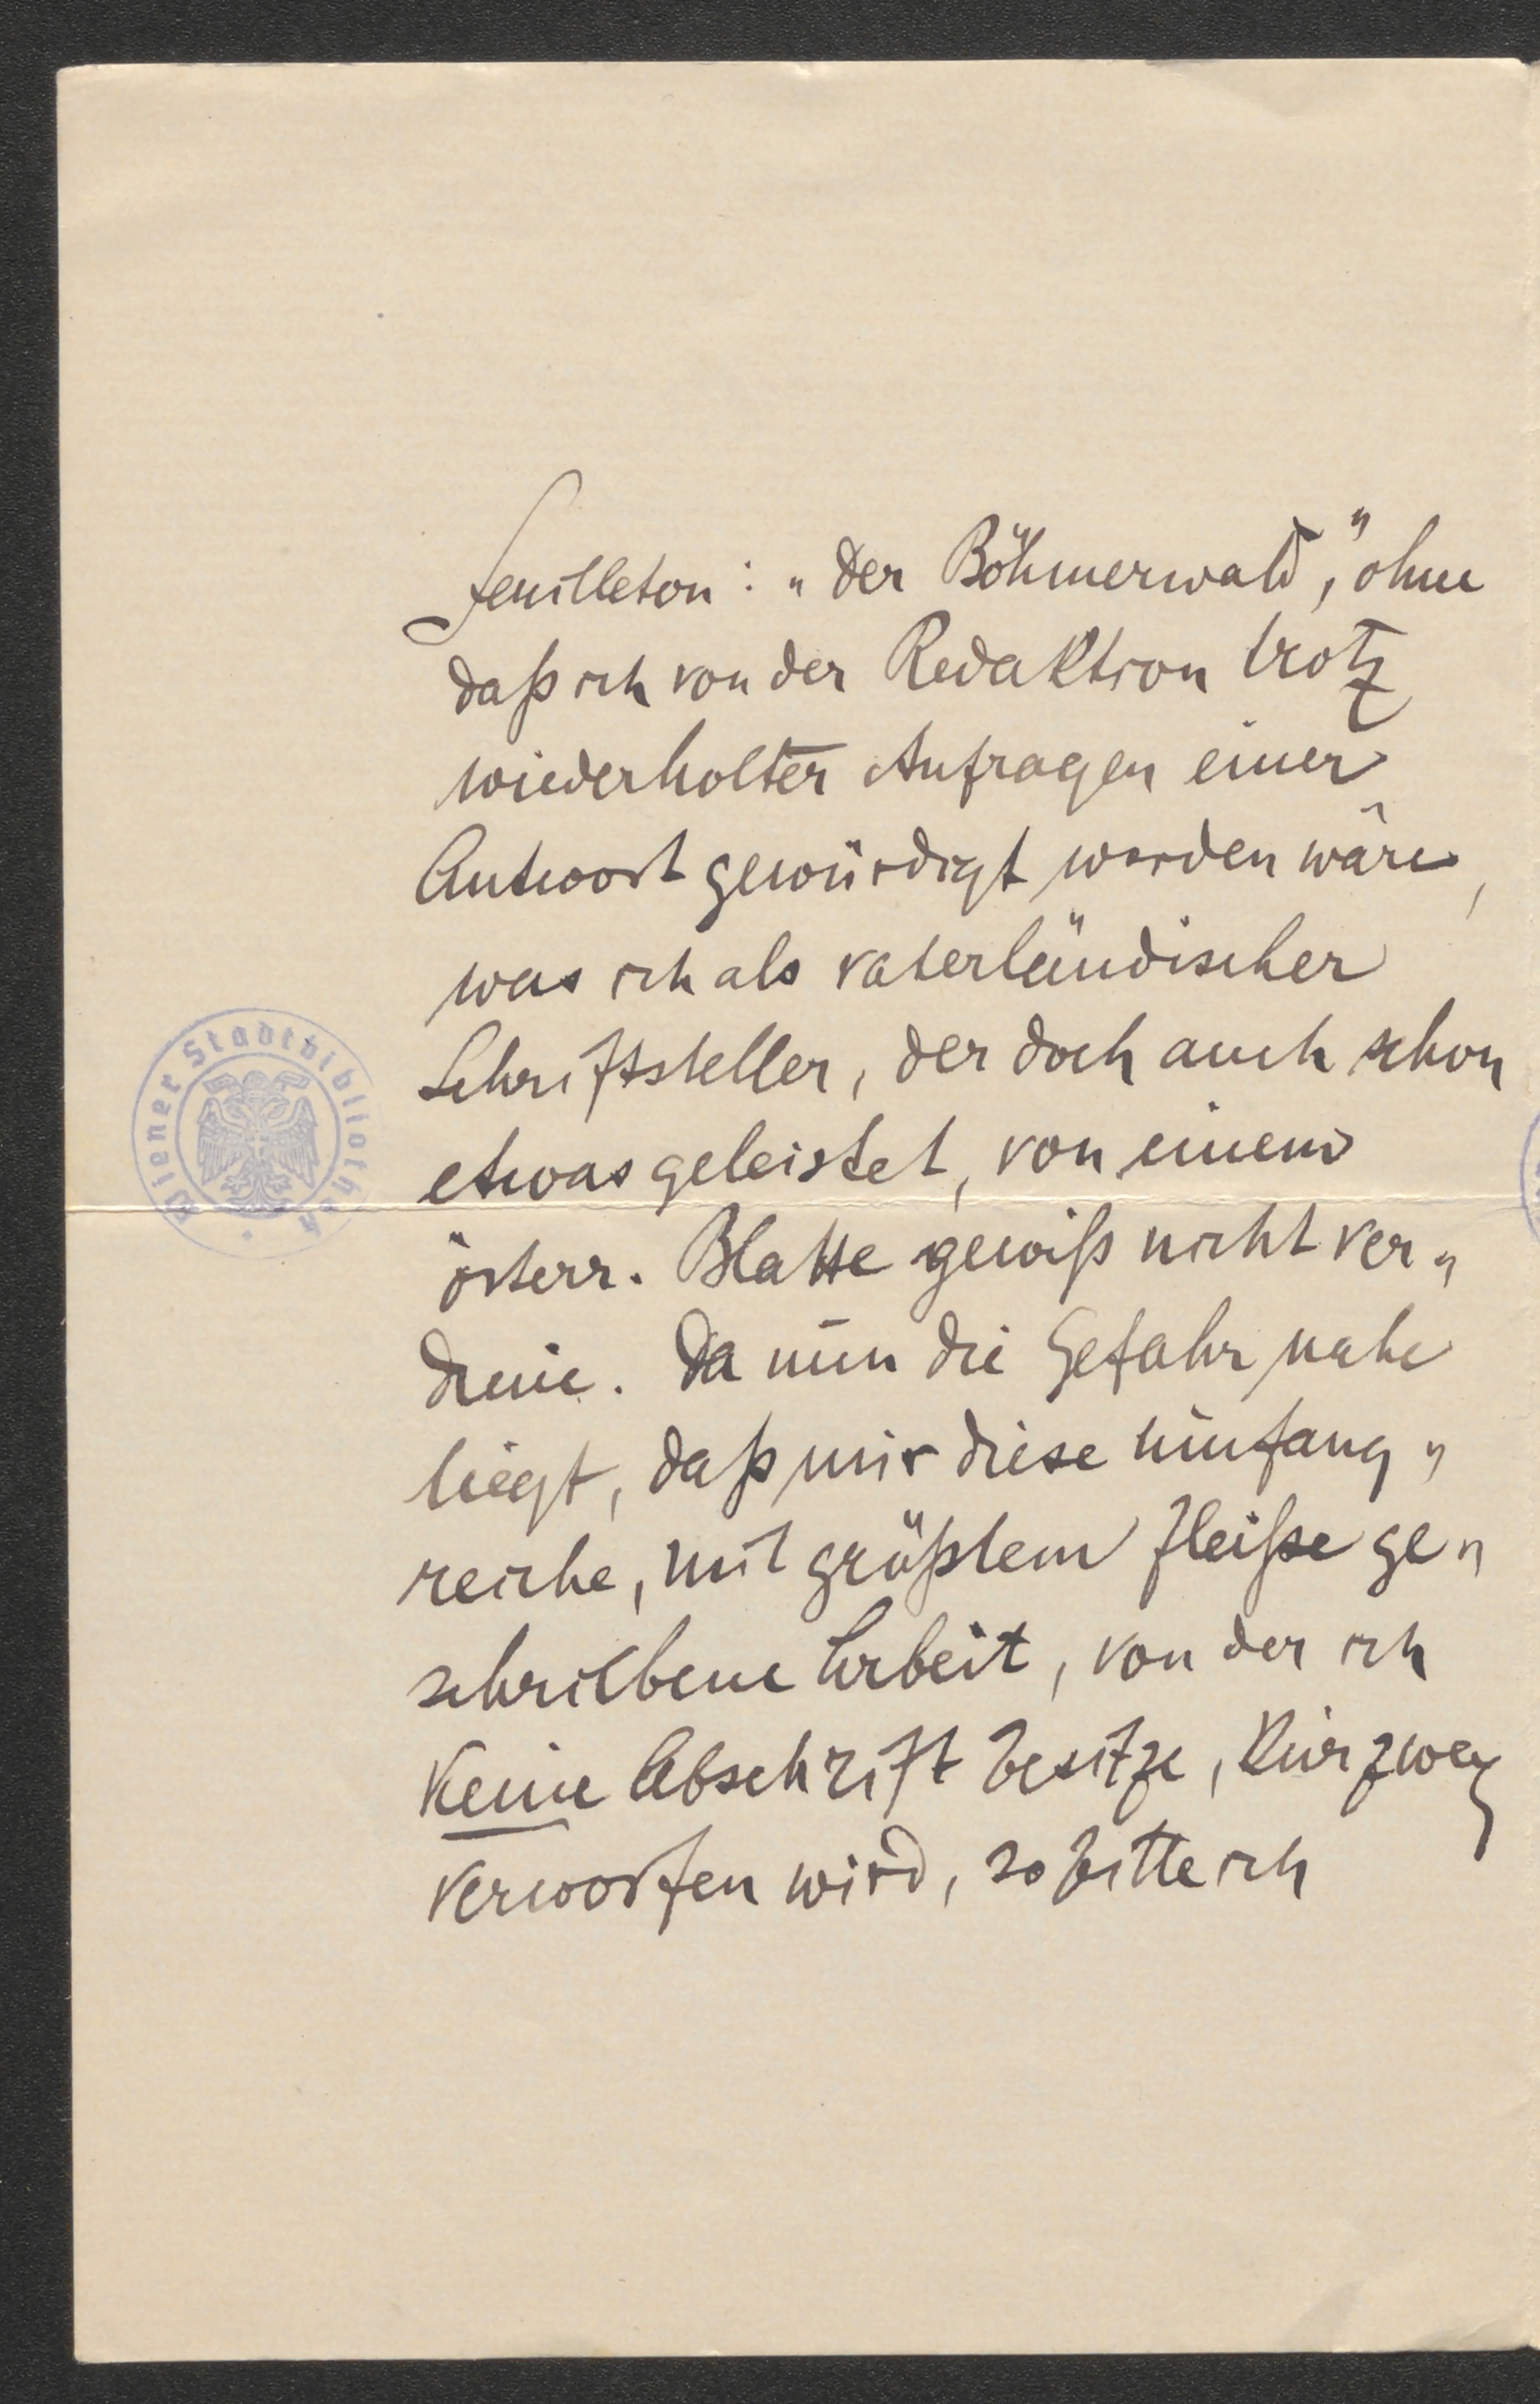 Feuilleton: „Der Böhmerwald," ohne
daß ich von der Redaktion trotz
wiederholter Anfragen einer
Antwort gewürdigt worden wäre,
was ich als vaterländischer
Schriftsteller, der doch auch schon
etwas geleistet, von einem
österr. Blatte gewiß nicht ver„
diene. Da nun die Gefahr nahe
liegt, daß mir diese umfang„
reiche, mit größtem Fleiße ge„
schriebene Arbeit, von der ich
keine Abschrift besitze, kurzweg
verworfen wird, so bitte ich
Wiener Stadtbibliothek